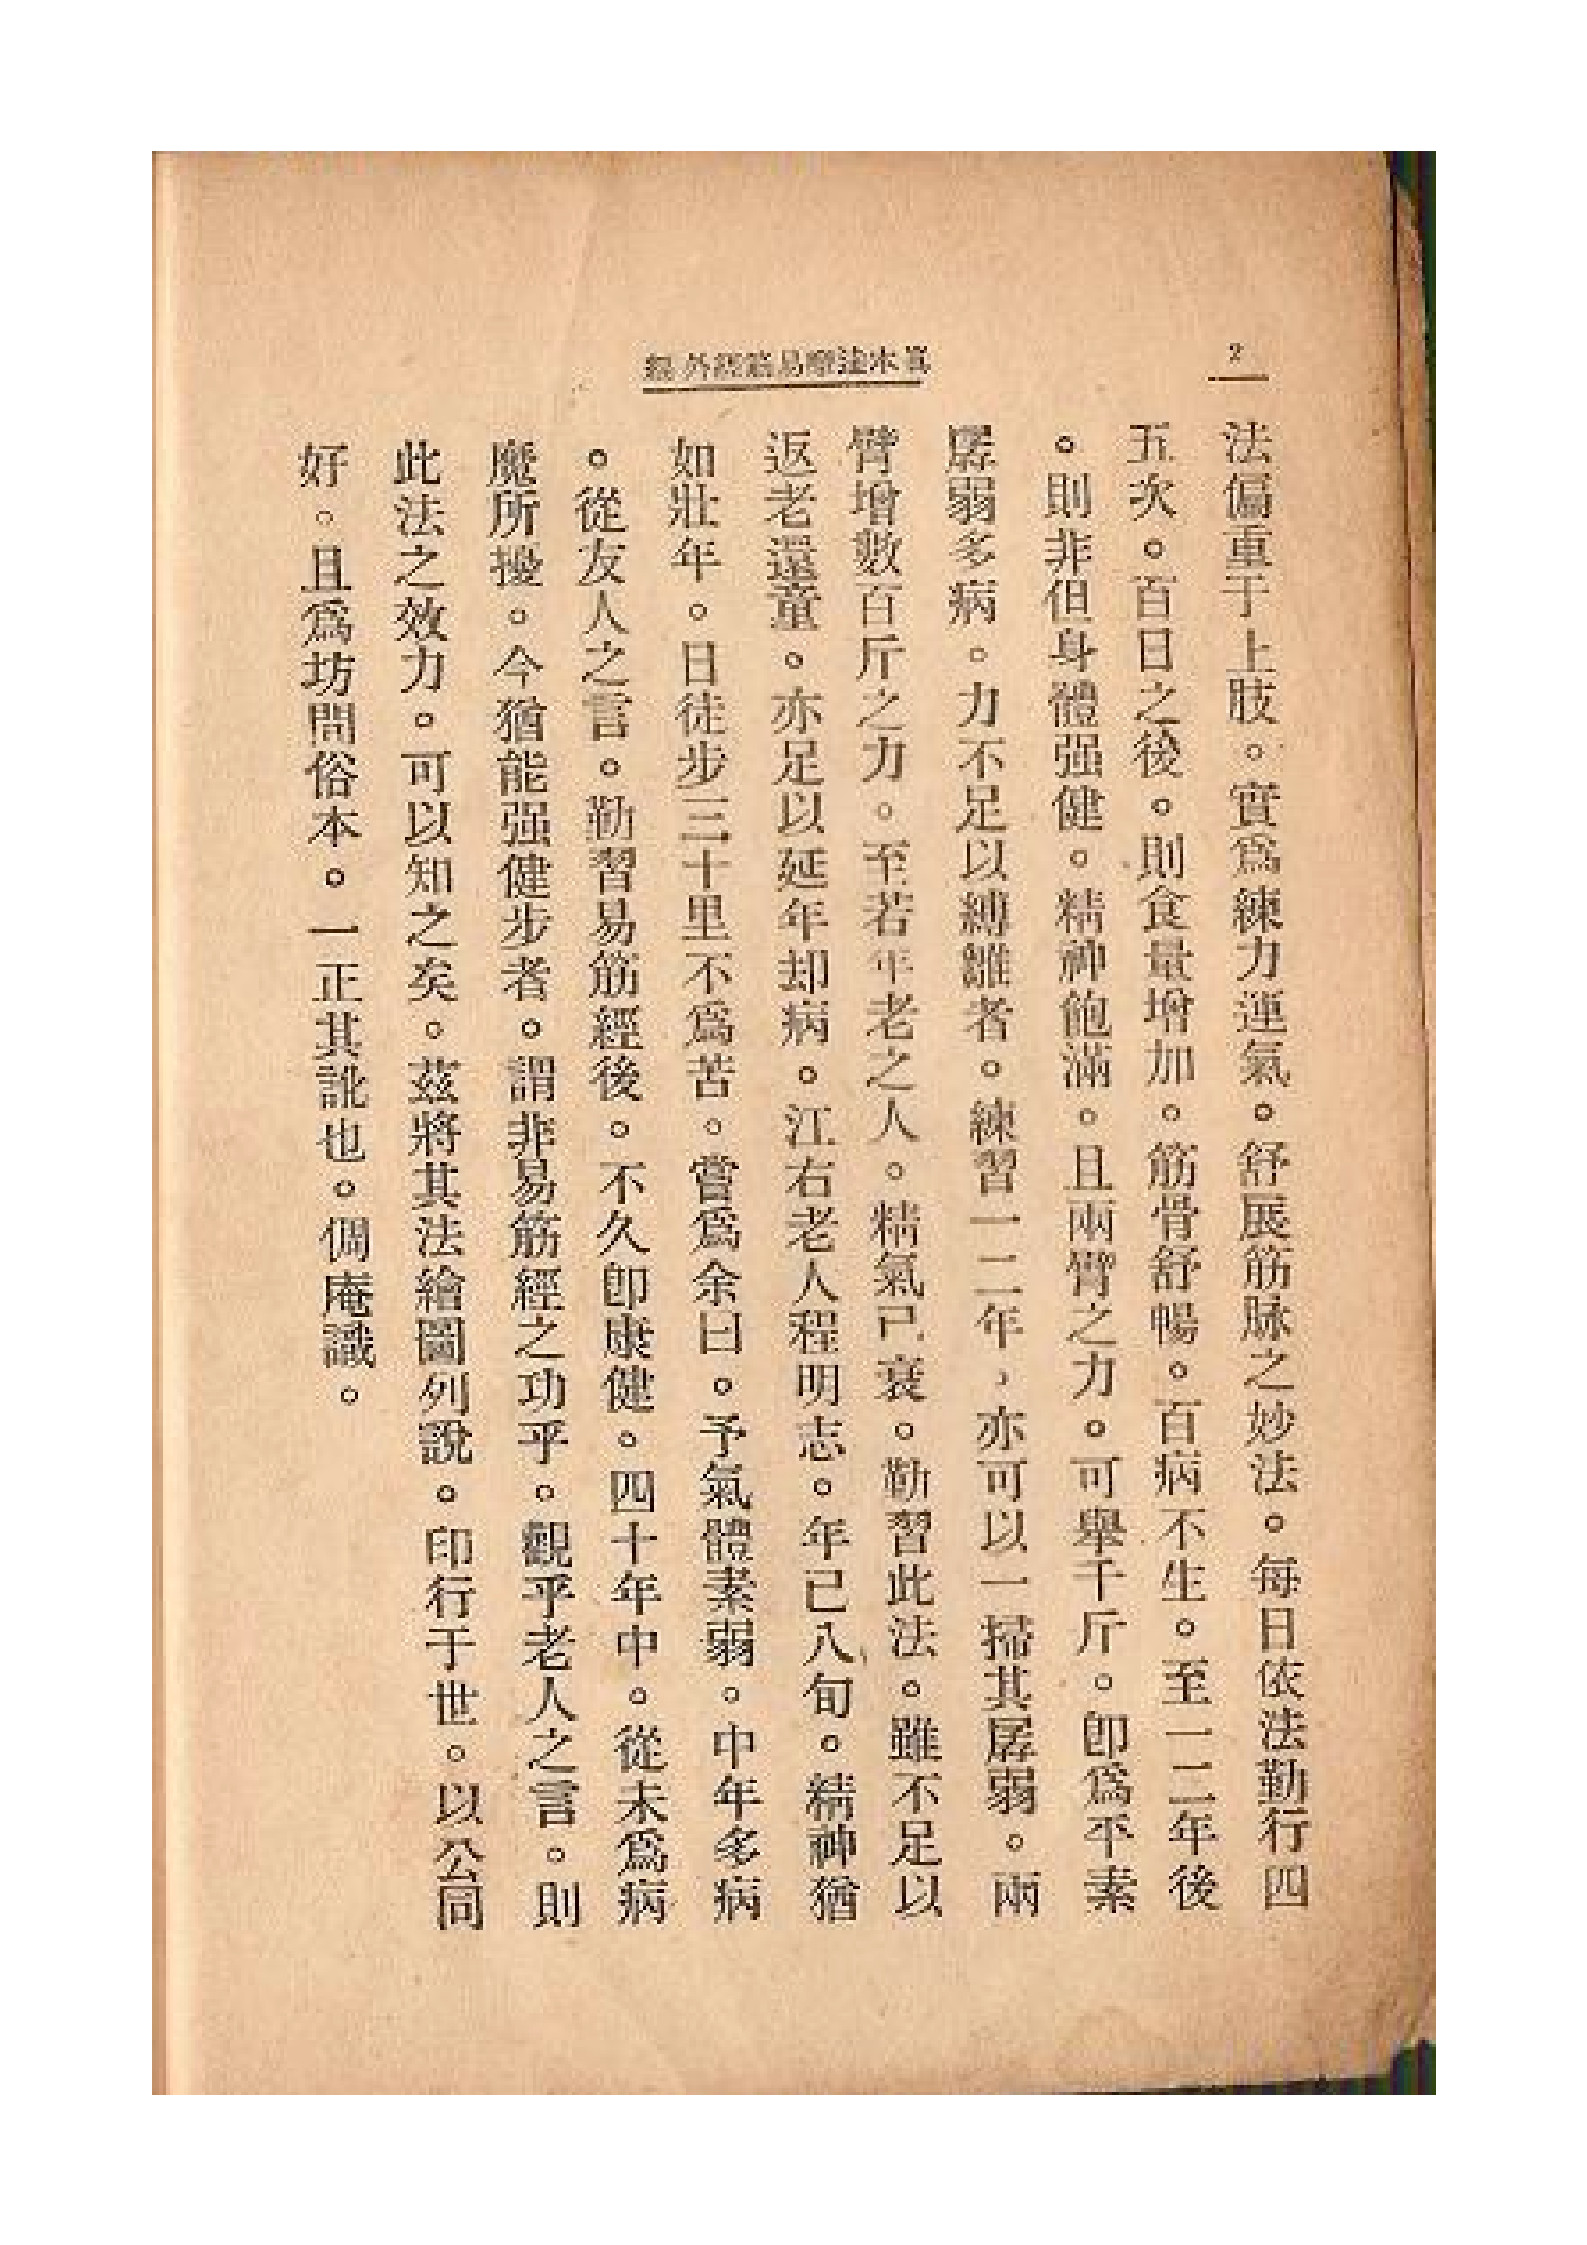 2
真本達摩易筋經外經
法偏重于上肢。實爲練力運氣。舒展筋脉之妙法。每日依法勤行四
五次。百日之後。則食量增加。筋骨舒暢。百病不生。至一二年後
。則非但身體强健。精神飽滿。且兩臂之力。可舉千斤。卽爲平素
孱弱多病。力不足以縛雛者。練習一二年，亦可以一掃其孱弱。兩
臂增數百斤之力。至若年老之人。精氣已衰。勤習此法。雖不足以
返老還童。亦足以延年却病。江右老人程明志。年已八旬。精神猶
如壯年。日徒步三十里不爲苦。嘗爲余曰。予氣體素弱。中年多病
。從友人之言。勤習易筋經後。不久卽康健。四十年中。從未爲病
魔所擾。今猶能强健步者。謂非易筋經之功乎。觀乎老人之言。則
此法之效力。可以知之矣。茲將其法繪圖列說。印行于世。以公同
好。且爲坊間俗本。一正其訛也。倜庵識。